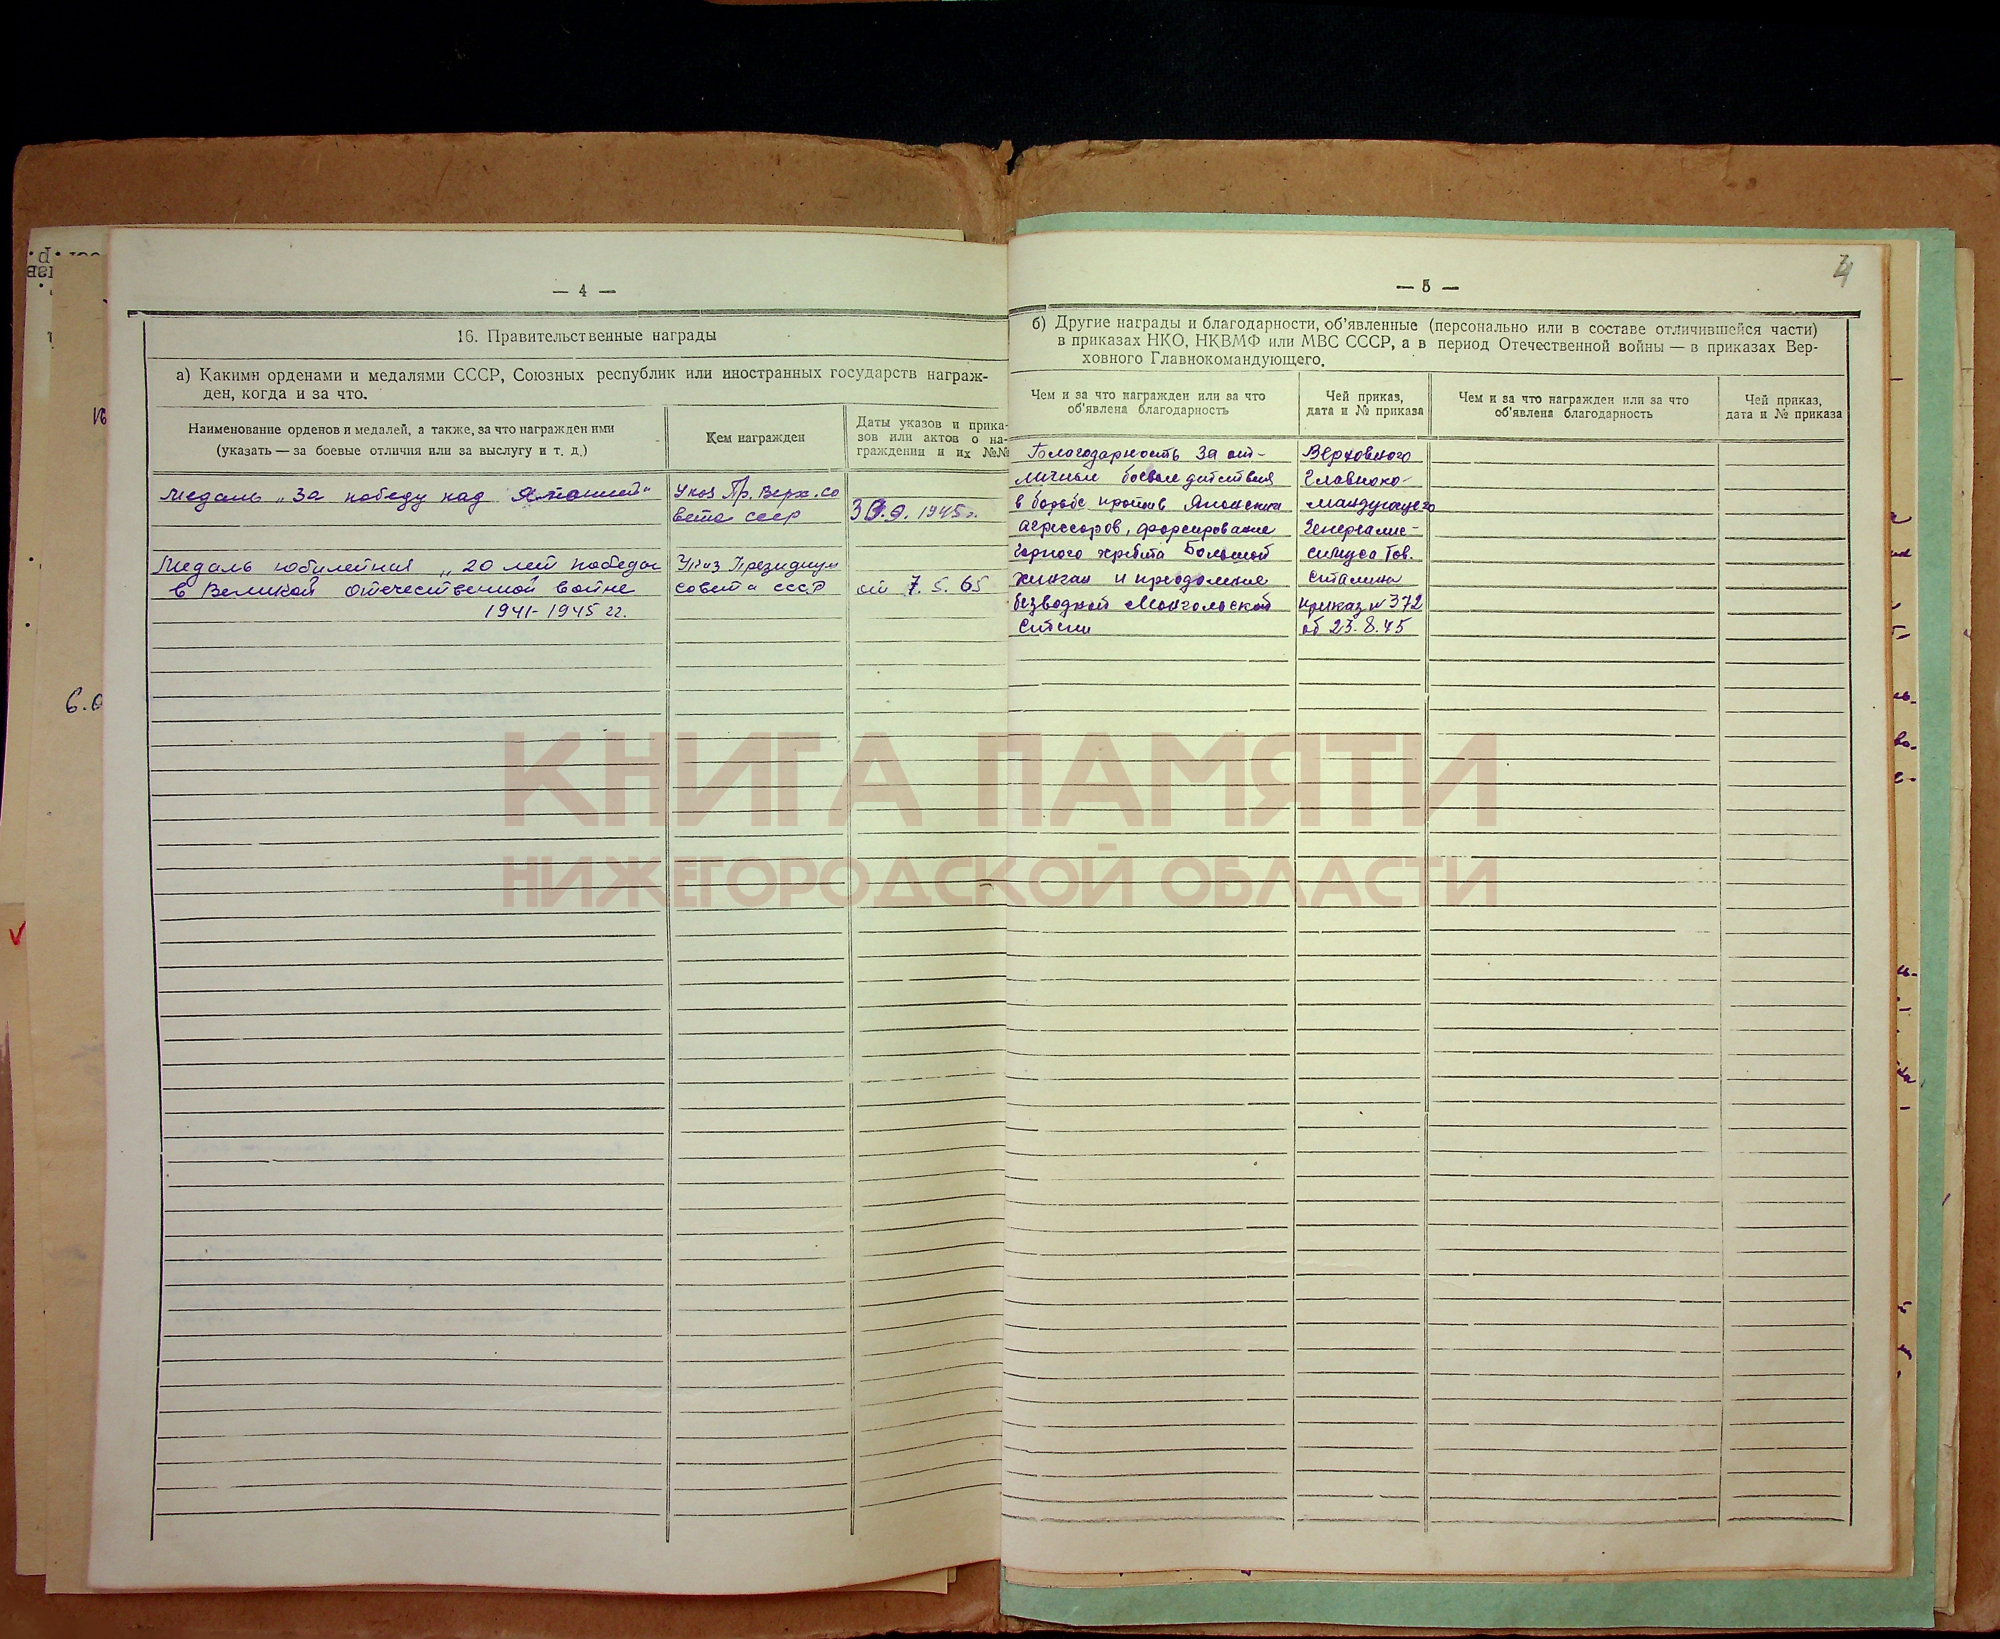 — 4 —
16. Правительственные награды
а) Какими орденами и медалями СССР, Союзных республик или иностранных государств награж-
ден, когда и за что.
Наименование орденов и медалей, а также, за что награжден ими
(указать — за боевые отличия или за выслугу и т. д.)
Кем награжден
Даты указов и прика-
зов или актов о на-
граждении и их №№
Медаль „За победу над Японией"
Указ Пр. Верх. со
вета ссср
30.9.1945г.
Медаль юбилейная „20 лет победы
в Великой отечественной войне
1941-1945 гг.
Указ Президиум
совета ссср
от 7.5.65
— 5 —
4
б) Другие награды и благодарности, об'явленные (персонально или в составе отличившейся части)
в приказах НКО, НКВМФ или МВС СССР, а в период Отечественной войны — в приказах Вер-
ховного Главнокомандующего.
Чем и за что награжден или за что
об'явлена благодарность
Чей приказ,
дата и № приказа
Чем и за что награжден или за что
об'явлена благодарность
Чей приказ,
дата и № приказа
Благодарность за от-
личные боевые действия
в борьбе против Японских
агрессоров, форсирование
горного хребта Большой
Хинган и преодоление
безводной Монгольской
степи
Верховного
Главноко-
мандующего
Генералис-
симуса Тов.
Сталина
приказ № 372
об 23.8.45
КНИГА ПАМЯТИ
НИЖЕГОРОДСКОЙ ОБЛАСТИ